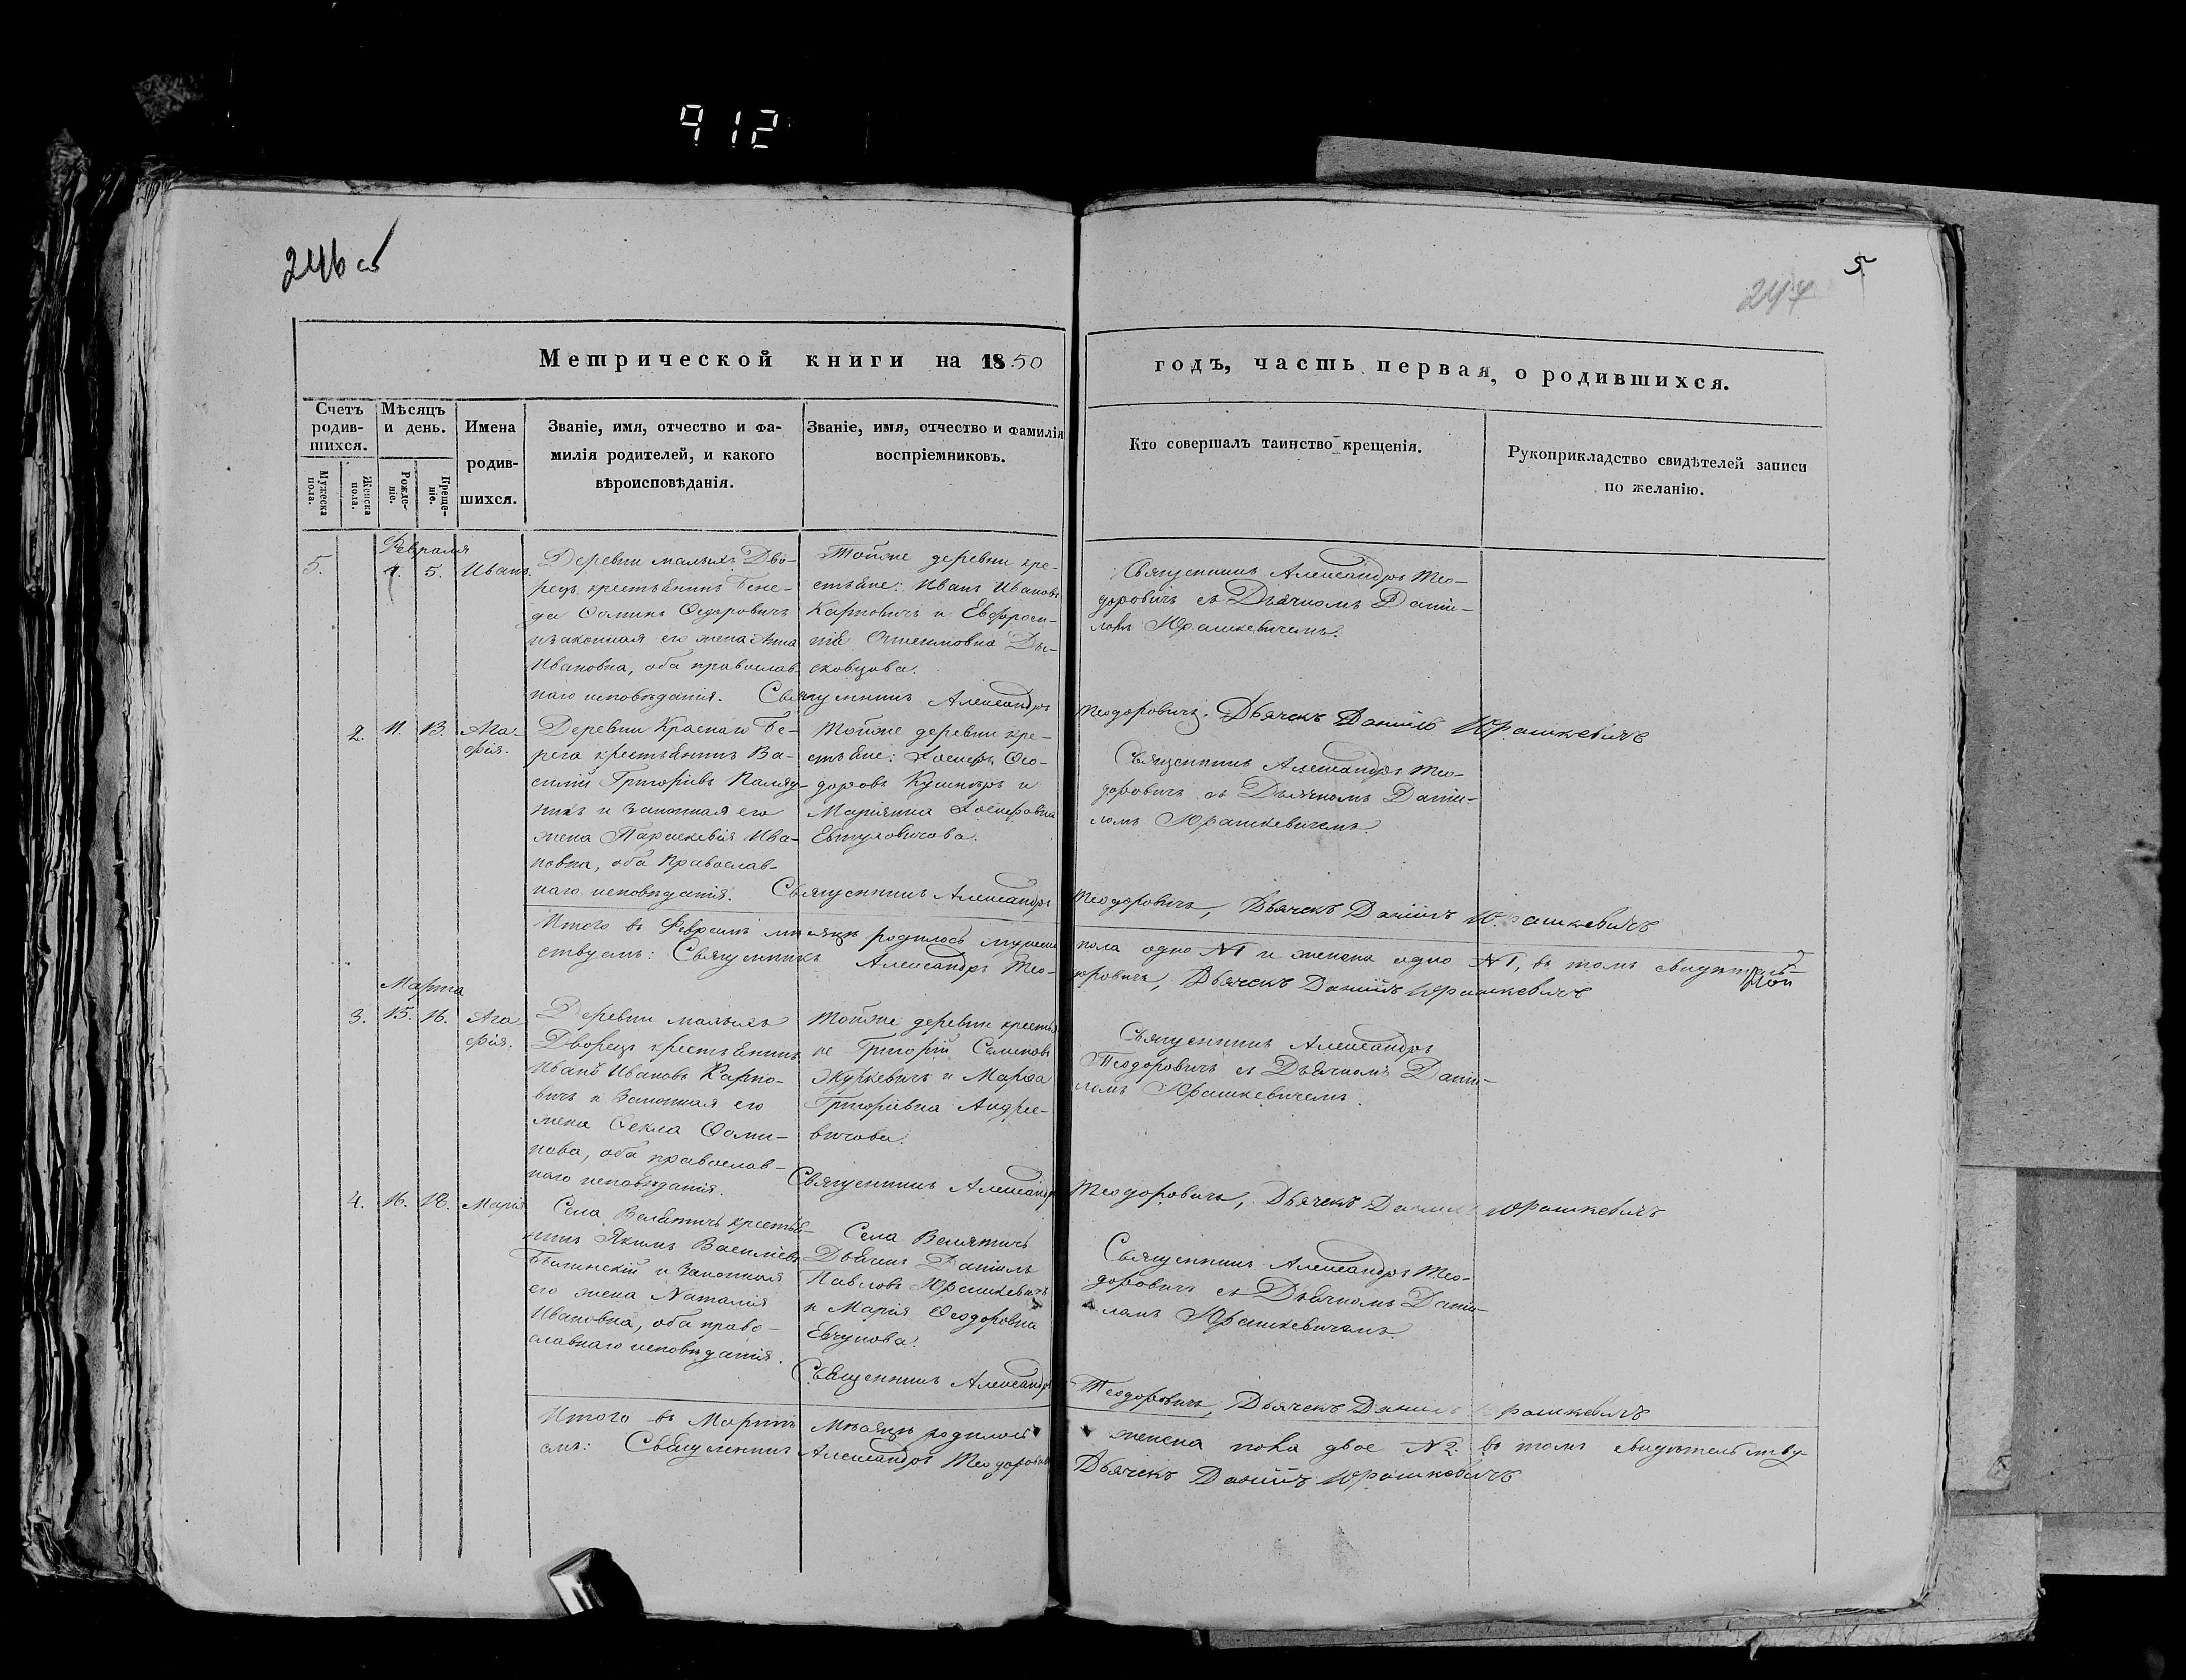 912
246 об
5
247
Метрической книги на 1850
годъ, часть первая, о родившихся.
Счетъ родив-шихся.
Мужеска пола.
Женска пола.
Мѣсяцъ и день.
Рожде-ніе.
Креще-ніе.
Имена
родив-
шихся.
Званіе, имя, отчество и фа-
милія родителей, и какого
вѣроисповѣданія.
Званіе, имя, отчество и фамилія
воспріемниковъ.
Кто совершалъ таинство крещенія.
Рукоприкладство свидѣтелей записи
по желанію.
Февраля
5. 4. 5. Иванъ.
Деревни малыхъ Дво-
рецъ крестьянинъ
Ѳедоровичъ
и законная его жена Анна
Ивановна, оба православ-
наго исповѣданія.
Тойже деревни кре-
стьяне: Иванъ Ивановъ
Карповичъ и Евфроси-
нія
Священникъ Александръ Тео-
доровичъ съ Дьячкомъ Дані-
ломъ Юрашкевичемъ.
Священникъ Александръ Теодоровичъ. Дьячекъ Даніилъ Юрашкевичъ
2. 11. 13.
фія.
Деревни Краснаго Бе-
рега крестьянинъ Ва-
силій Григорьевъ
и законная его
жена Параскевія Ива-
новна, оба православ-
наго исповѣданія.
Тойже деревни кре-
стьяне: Ѳео-
доровъ Кушнеръ и
Маріянна
Священникъ Александръ Тео-
доровичъ съ Дьячкомъ Дані-
ломъ Юрашкевичемъ.
Священникъ Александръ Теодоровичъ, Дьячекъ Даніилъ Юрашкевичъ
Итого въ Февралѣ мѣсяцѣ родилось мужеска пола одно №1 и женска одно №1, въ томъ свидѣтель-
ствуемъ: Священникъ Александръ Теодоровичъ, Дьячекъ Даніилъ Юрашкевичъ
Марта
3. 15. 16. Ага-
фія.
Деревни малыхъ
Дворецъ крестьянинъ
Иванъ Ивановъ Карпо-
вичъ и законная его
жена Ѳекла Ѳоми-
нова, оба православ-
наго исповѣданія.
Тойже деревни крестья-
не Григорій Семеновъ
Жуткевичъ и Марѳа
Григорьевна Андре-
вичова.
Священникъ Александръ
Теодоровичъ съ Дьячкомъ Дані-
ломъ Юрашкевичемъ.
Священникъ Александръ Теодоровичъ, Дьячекъ Даніилъ Юрашкевичъ
4. 16. 18. Марія
Села Велятичъ крестья-
нинъ Якимъ Васильевъ
и законная
его жена Наталія
Ивановна, оба право-
славнаго исповѣданія.
Села Велятичъ
Дьячекъ Даніилъ
Павловъ Юрашкевичъ
и Марія Ѳеодоровна
Священникъ Александръ Тео-
доровичъ съ Дьячкомъ Дані-
ломъ Юрашкевичемъ.
Священникъ Александръ Теодоровичъ, Дьячекъ Даніилъ Юрашкевичъ
Итого въ Мартѣ мѣсяцѣ родилось женска пола двое №2. въ томъ свидѣтельству-
емъ: Священникъ Александръ Теодоровичъ Дьячекъ Даніилъ Юрашкевичъ